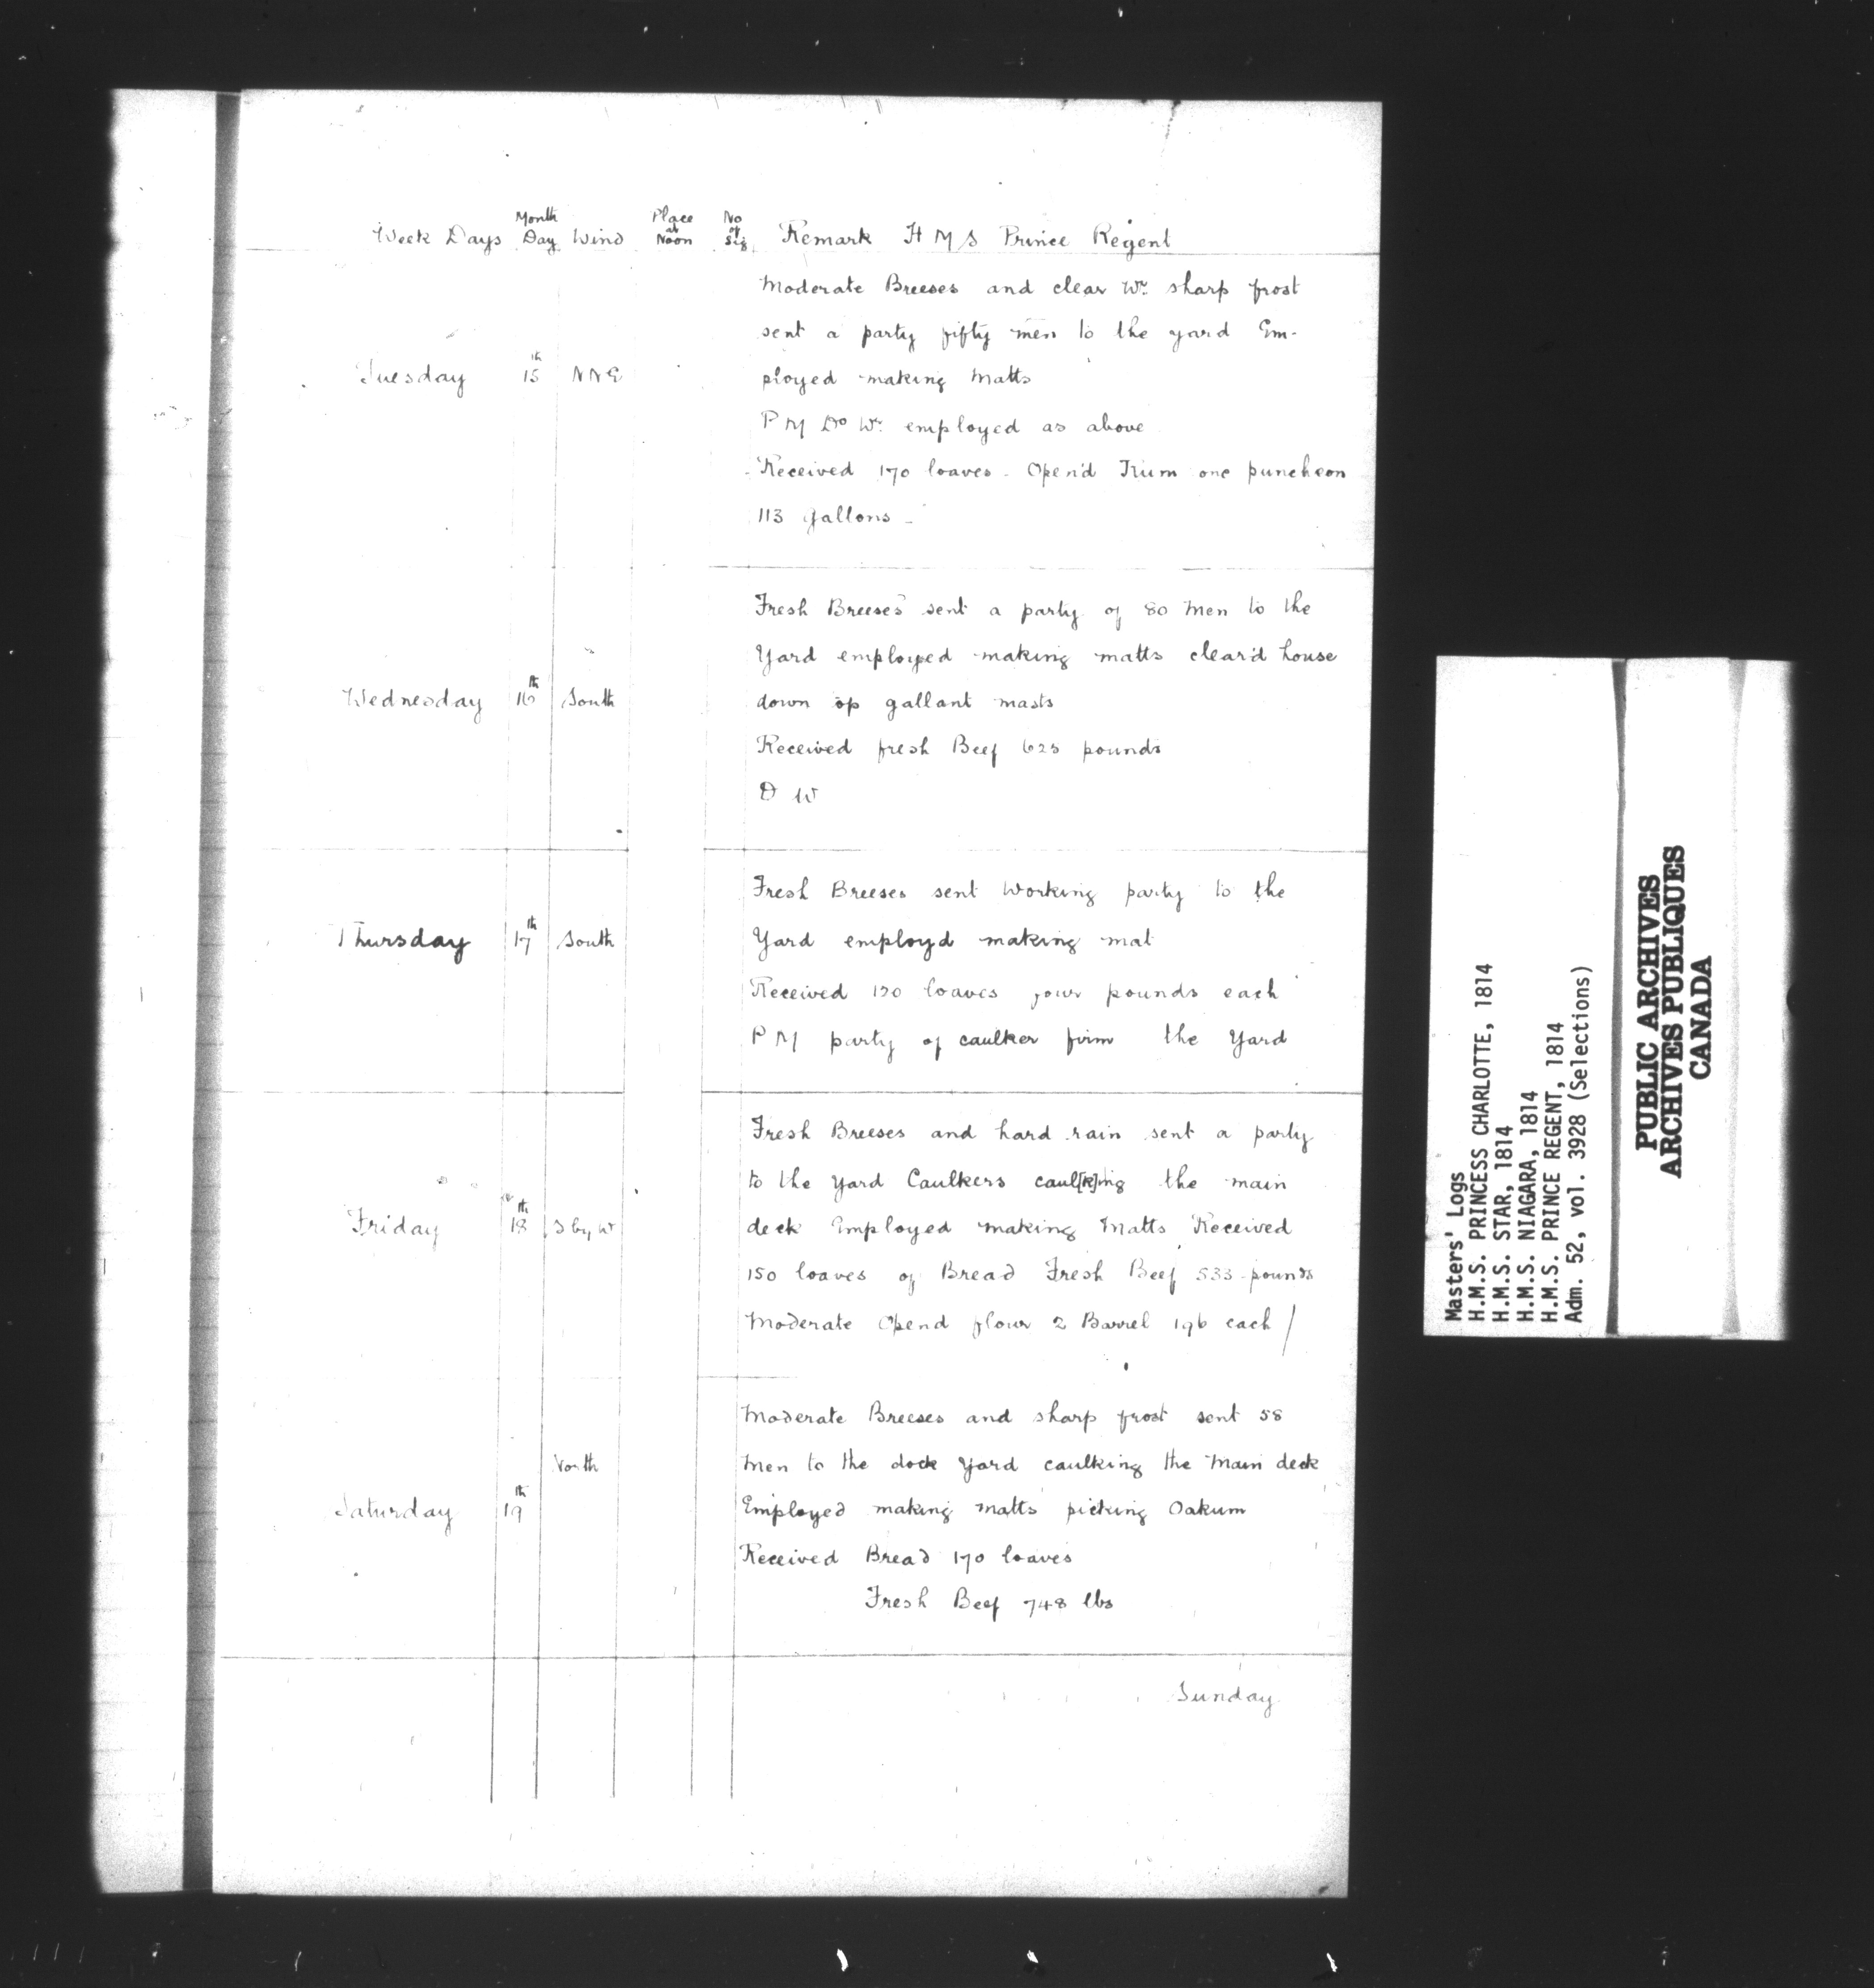 Week Days Month Day Wind Place at Noon No of Sig. Remark H M S Prince Regent
Moderate Breeses and clear Wr. sharp frost
sent a party fifty men to the yard Em-
Tuesday 15th NNE ployed making Matts
P M Do Wr. employed as above
Received 170 loaves - Open'd Rum one puncheon
113 gallons -
Fresh Breeses sent a party of 80 Men to the
Yard employed making matts clear'd house
Wednesday 16th South down op gallant masts
Received fresh Beef 623 pounds
D W
Fresh Breeses sent Working party to the
Thursday 17th South Yard employd making mat
Received 120 loaves four pounds each
P M party of caulker firm the Yard
Fresh Breeses and hard rain sent a party
to the Yard Caulkers caul[k]ing the main
Friday 18th S by W deck Employed making Matts Received
150 loaves of Bread Fresh Beef 533 pounds
Moderate Opend flour 2 Barrel 196 each /
Moderate Breeses and sharp frost sent 58
North Men to the dock Yard caulking the Main deck
Saturday 19th Employed making matts picking Oakum
Received Bread 170 loaves
Fresh Beef 748 lbs
Sunday
Masters' Logs
H.M.S. PRINCESS CHARLOTTE, 1814
H.M.S. STAR, 1814
H.M.S. NIAGARA, 1814
H.M.S. PRINCE REGENT, 1814
Adm. 52, vol. 3928 (Selections)
PUBLIC ARCHIVES
ARCHIVES PUBLIQUES
CANADA